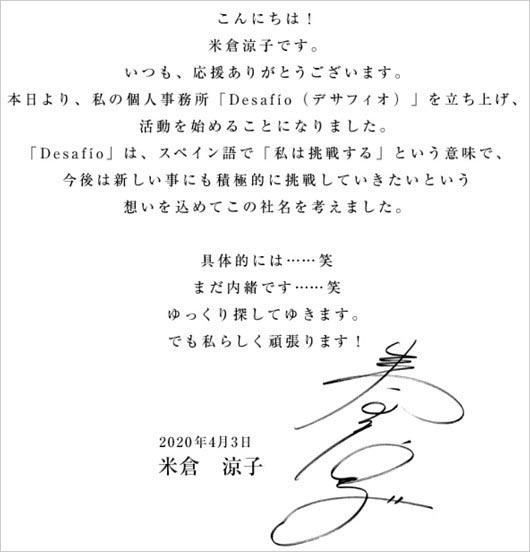 こんにちは！
米倉涼子です。
いつも、応援ありがとうございます。
本日より、私の個人事務所「Desafío（デサフィオ）」を立ち上げ、
活動を始めることになりました。
「Desafío」は、スペイン語で「私は挑戦する」という意味で、
今後は新しい事にも積極的に挑戦していきたいという
想いを込めてこの社名を考えました。
具体的には……笑
まだ内緒です……笑
ゆっくり探してゆきます。
でも私らしく頑張ります！
2020年4月3日
米倉　涼子